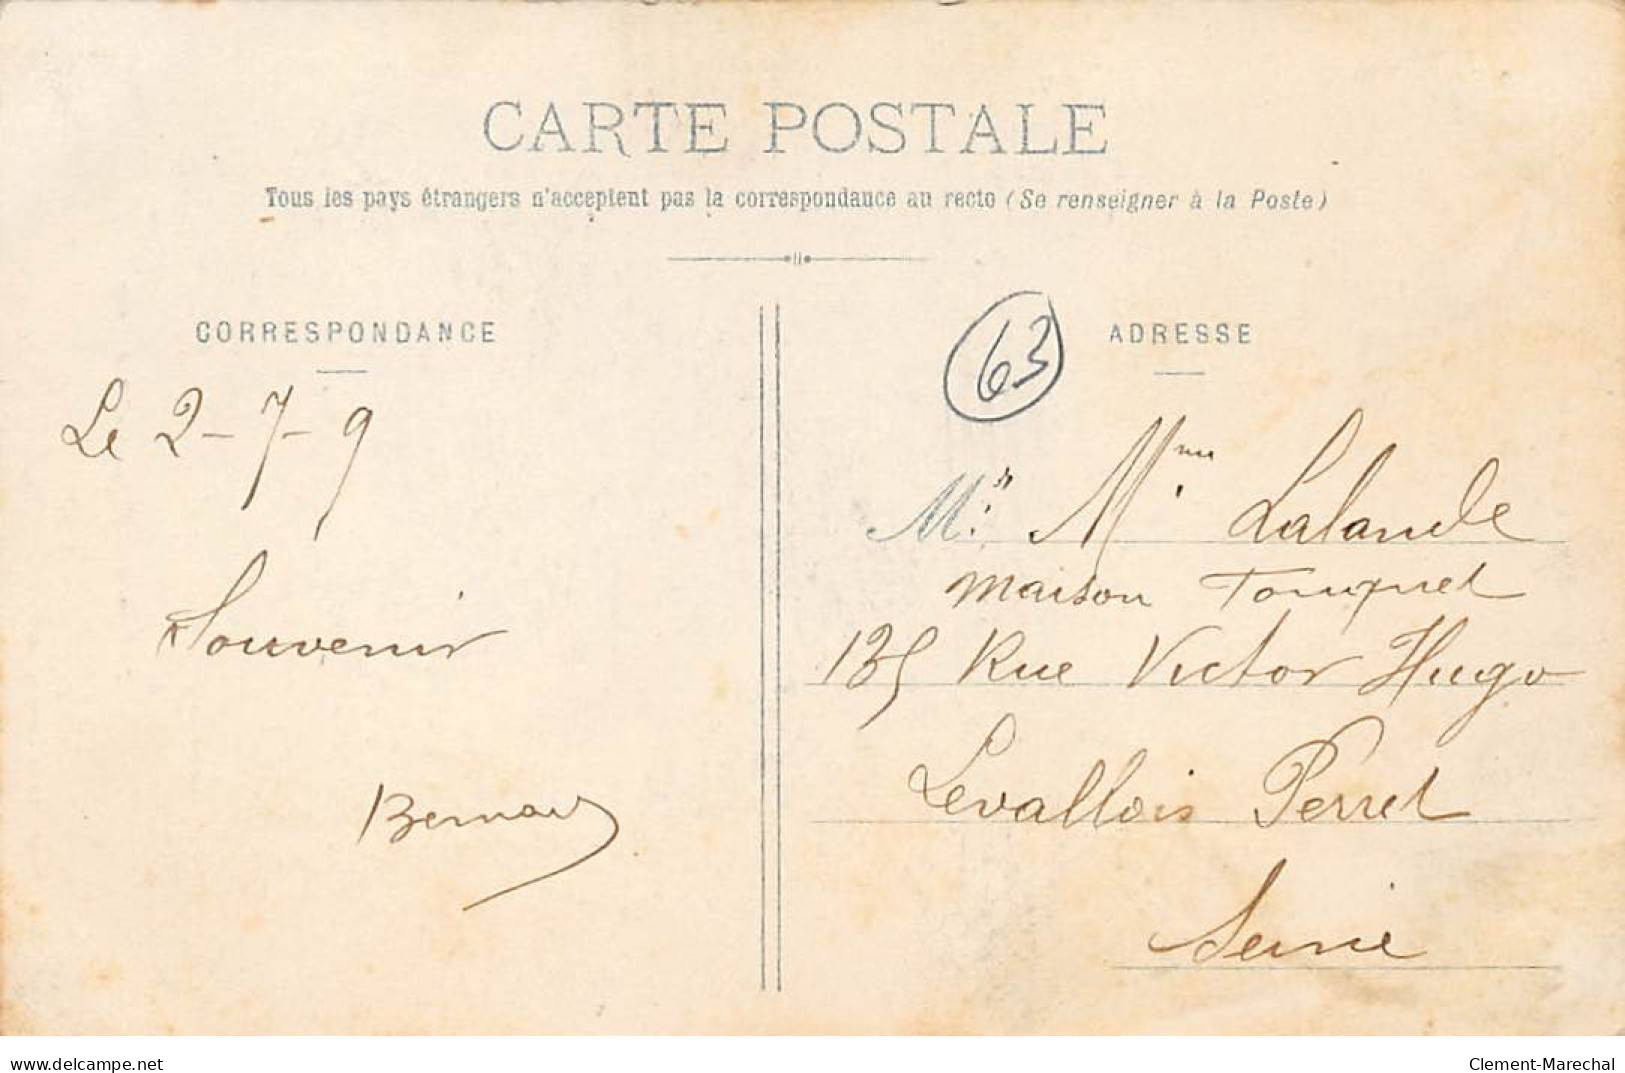 CARTE POSTALE
Tous les pays étrangers n'acceptent pas la correspondance au recto (Se renseigner à la Poste)
CORRESPONDANCE
Le 2-7-9
Souvenir
Bernard
63
ADRESSE
M. Mme Lalande
maison Touquet
135 Rue Victor Hugo
Levallois Perret
Seine
www.delcampe.net
Clement-Marechal